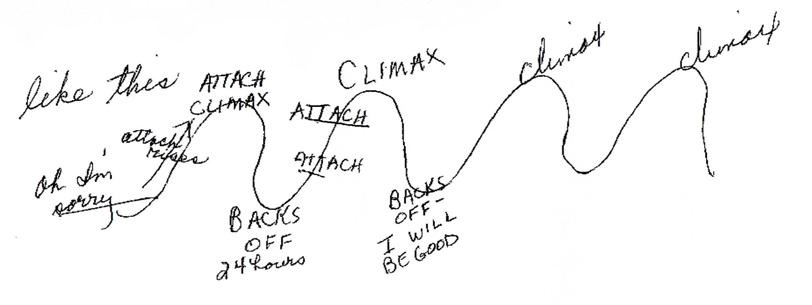 like this
ATTACH
CLIMAX
attach
rises
Oh I'm
sorry
BACKS
OFF
24 hours
CLIMAX
ATTACH
ATTACH
BACKS
OFF-
I WILL
BE GOOD
Climax
Climax